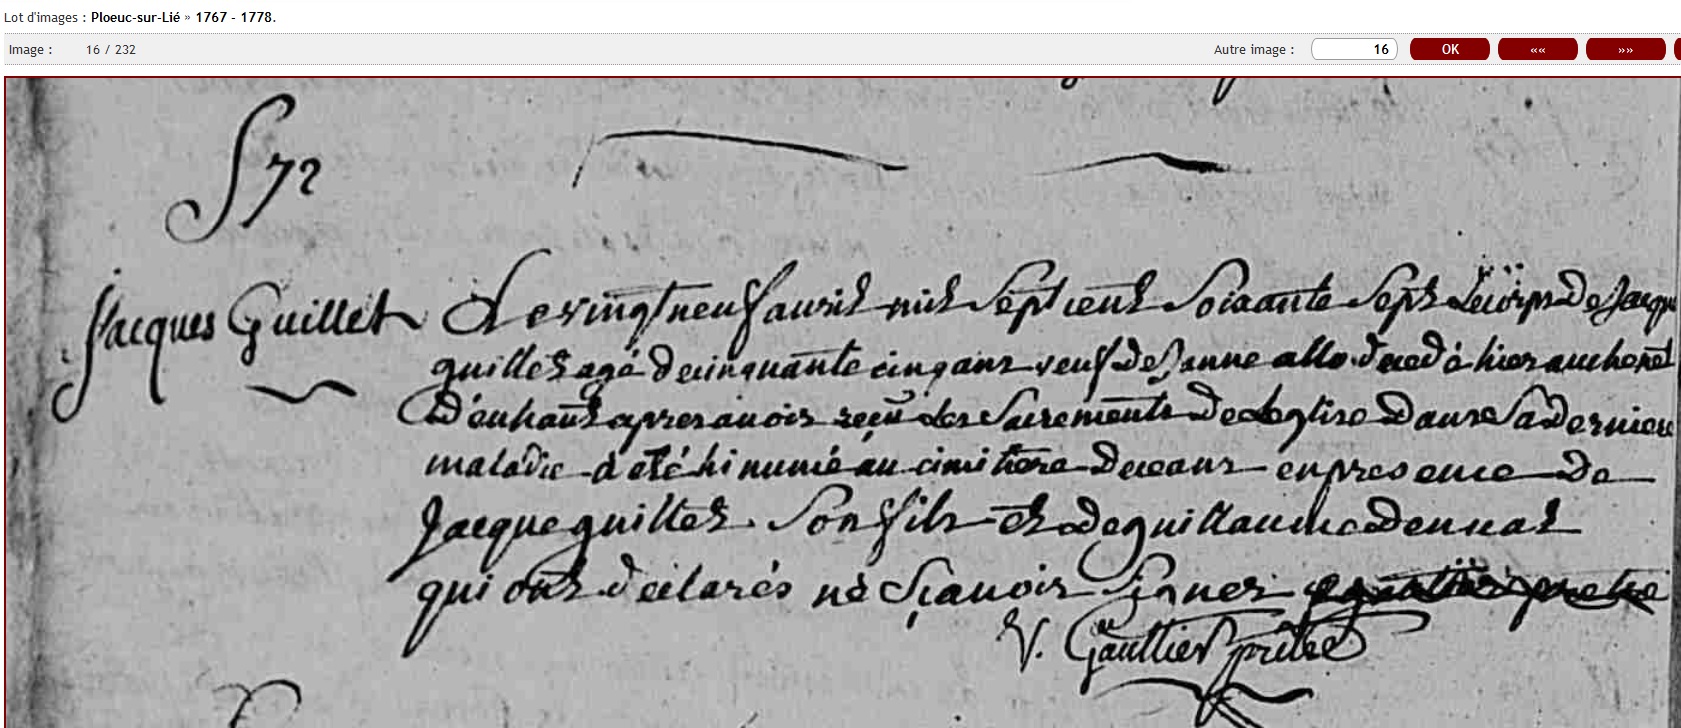 Lot d'images : Ploeuc-sur-Lié » 1767 - 1778.
Image : 16 / 232 Autre image : 16 OK «« »»
S 72
Jacques Guillet
Le vingt neuf auril mil Sept cent Soixante Sept Le corps De Jacque
guillet agé de cinquante cinq ans veuf de Janne allo decedé hier au
D'enhaut apres auoir reçu Les Sacrements De Leglise Dans Sa Derniere
maladie a eté hinumé au cimitiere De ceans en presence De
Jacque guillet Son fils et De guillaume
qui ont declarés ne Sçauoir Signer
V. Gaultier prêtre